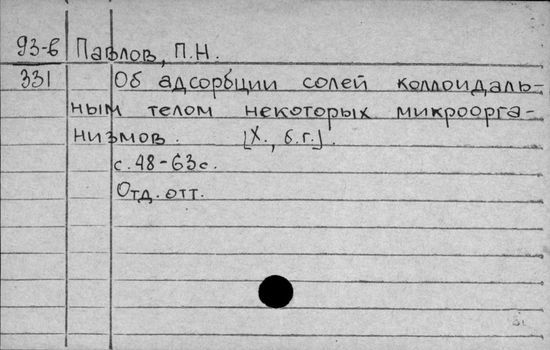 93-6 Павлов, П.Н.
331 Об адсорбции солей коллоидаль-
ным телом некоторых микроорга-
низмов. [Х., б.г.].
с. 48-63 с.
Отд. отт.